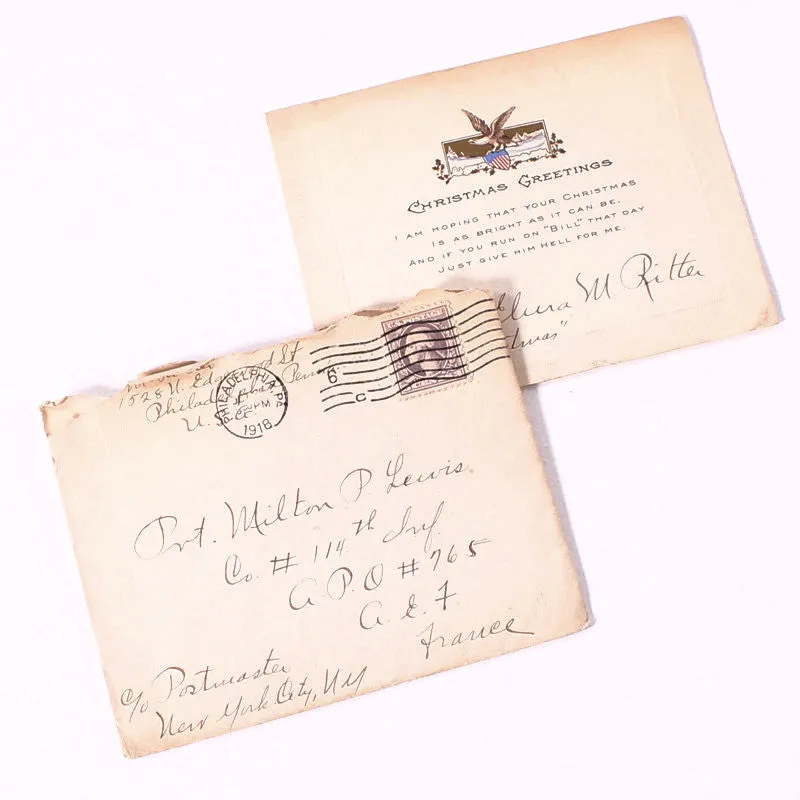 CHRISTMAS GREETINGS
I AM HOPING THAT YOUR CHRISTMAS
IS AS BRIGHT AS IT CAN BE,
AND IF YOU RUN ON "BILL" THAT DAY
JUST GIVE HIM HELL FOR ME.
M Ritter
tmas"
1528 N.
Philad
U. S.
PHILADELPHIA, PA.
PM
1918
6
C
U.S. POSTAGE
Pvt. Milton P. Lewis
Co. # 114th Inf
A.P.O # 765
A. E. F.
France
c/o Postmaster
New York City, NY